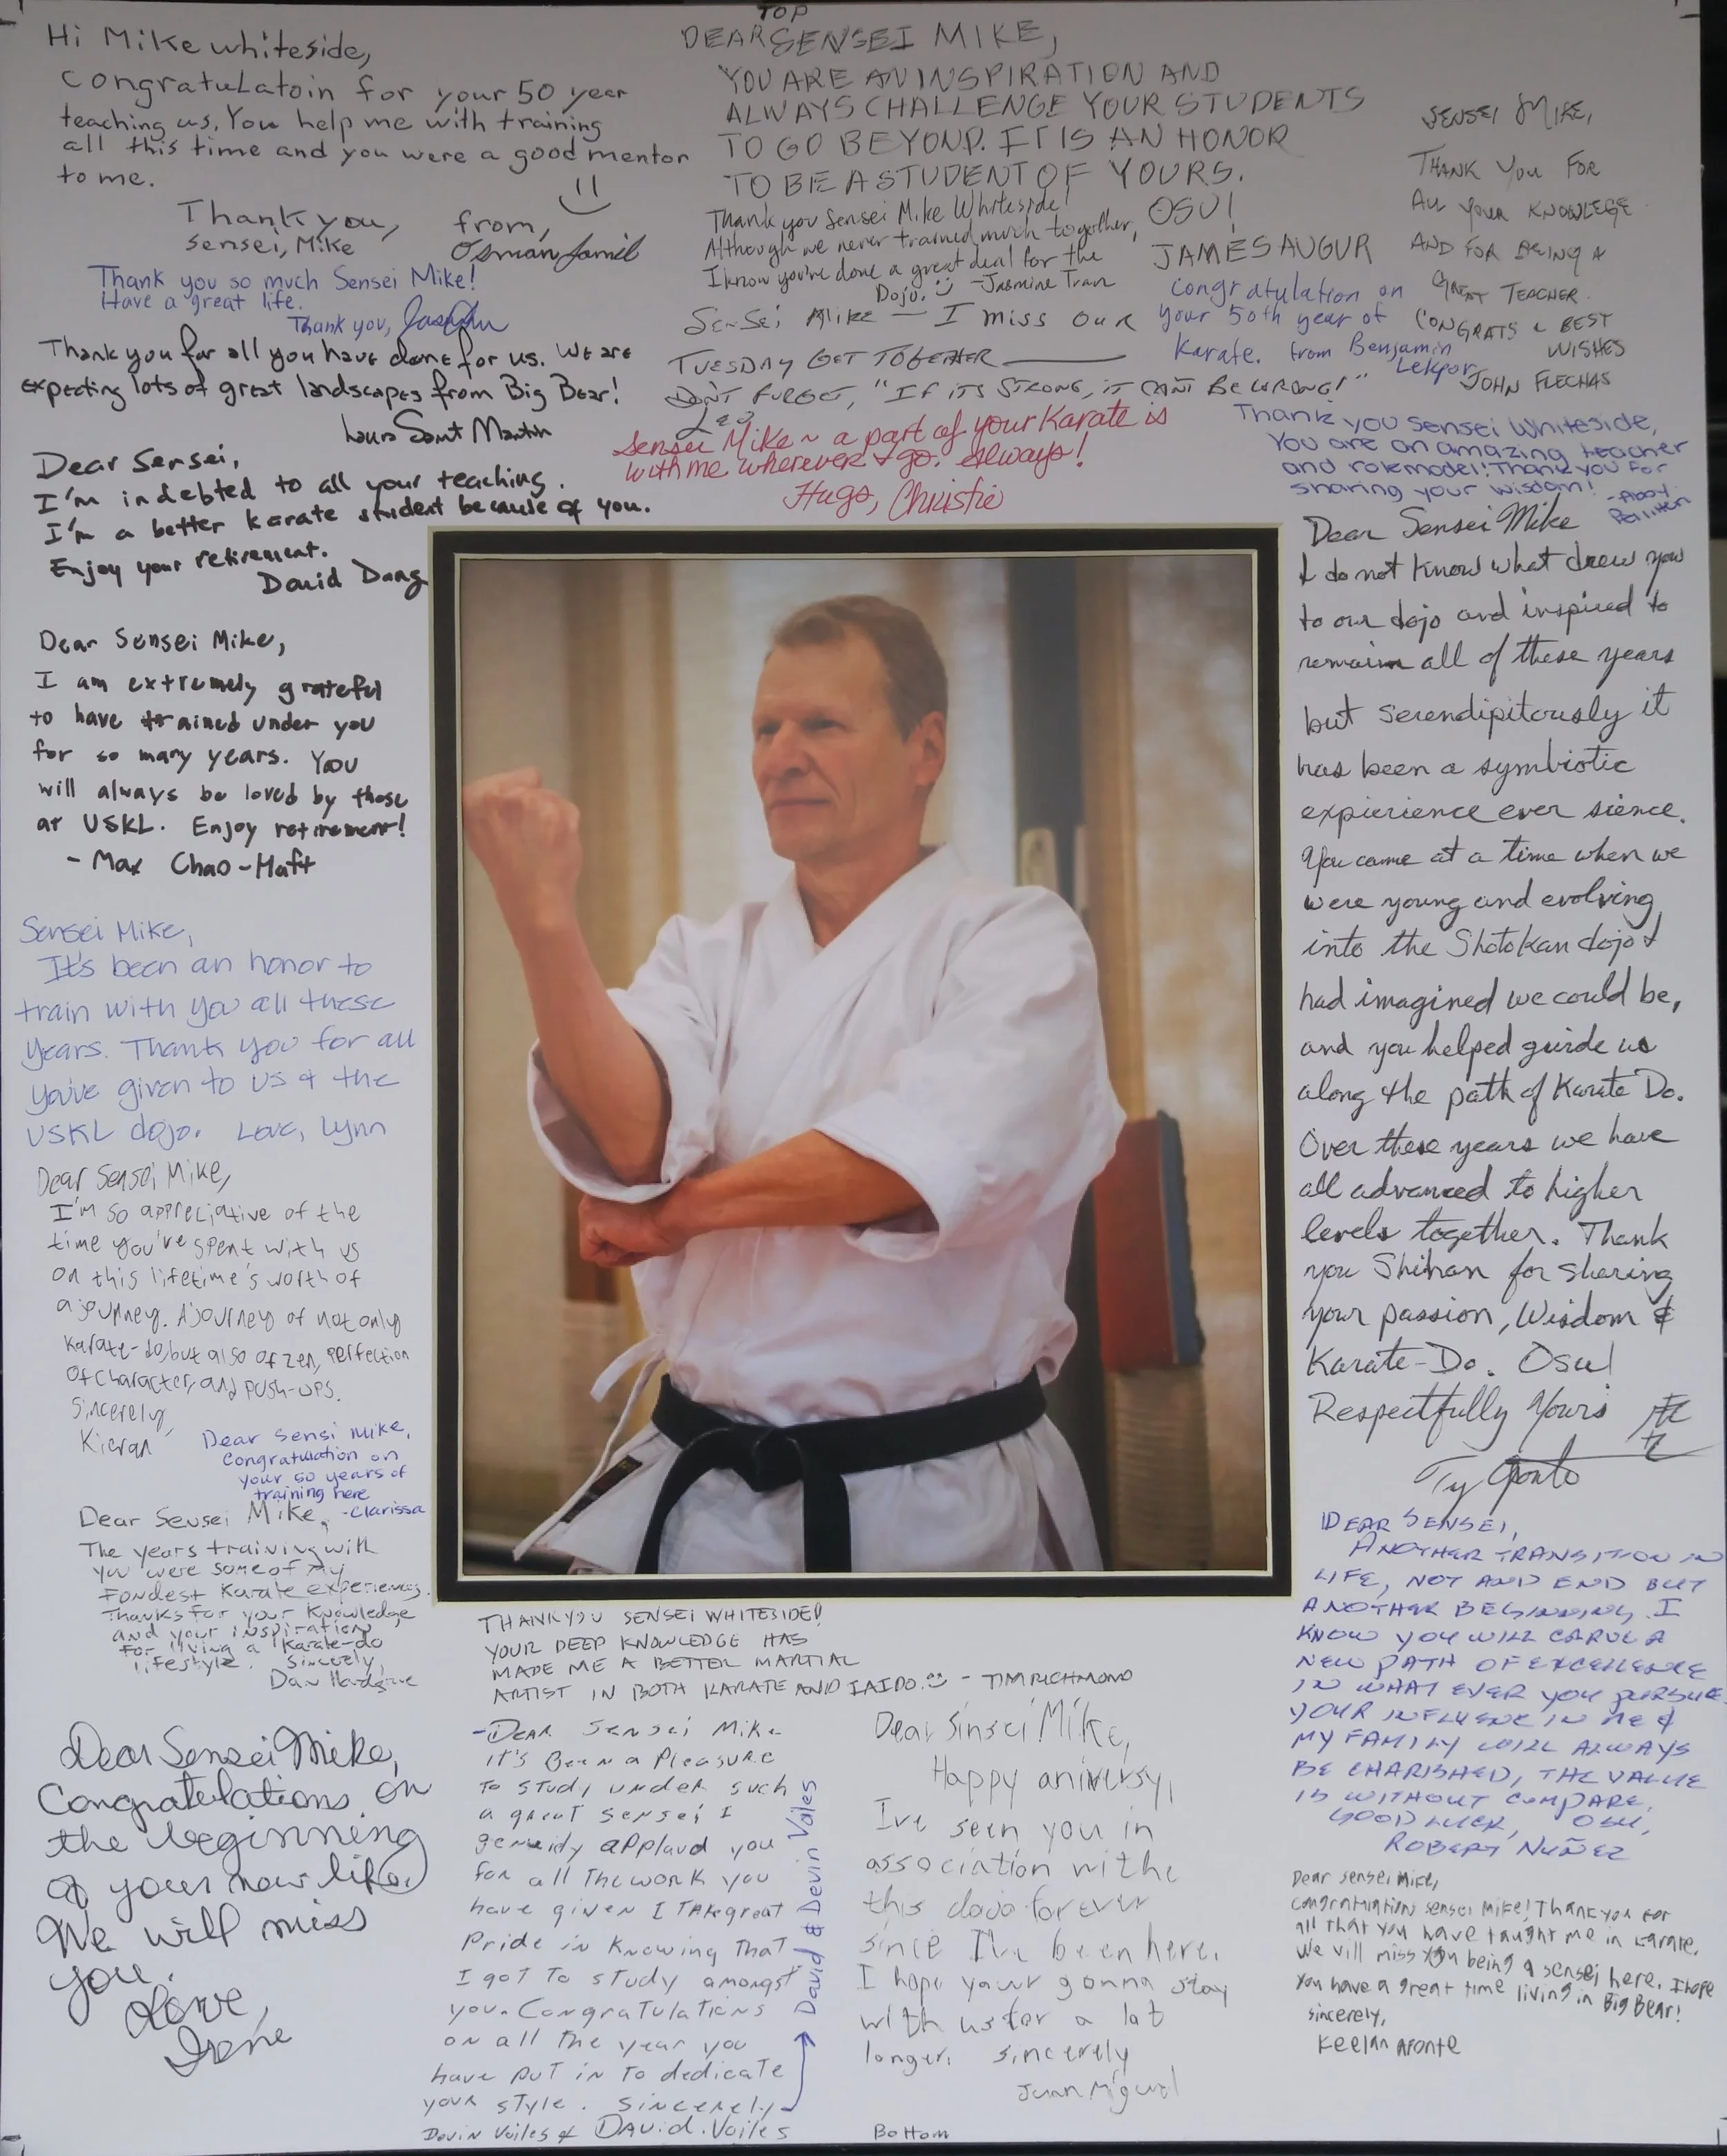 TOP
Hi Mike whiteside,
Congratulatoin for your 50 year
teaching us. You help me with training
all this time and you were a good mentor
to me.
Thank you,
Sensei, Mike
from,
Osman Jamil
DEAR SENSEI MIKE,
YOU ARE AN INSPIRATION AND
ALWAYS CHALLENGE YOUR STUDENTS
TO GO BEYOND. IT IS AN HONOR
TO BE A STUDENT OF YOURS.
OSU!
JAMES AUGUR
SENSEI MIKE,
THANK YOU FOR
ALL YOUR KNOWLEGE
AND FOR BEING A
GREAT TEACHER.
CONGRATS & BEST
WISHES
JOHN FLECHAS
Thank you Sensei Mike Whiteside!
Although we never trained much together,
I know you've done a great deal for the
Dojo. -Jasmine Tran
Thank you so much Sensei Mike!
Have a great life.
Thank you,
congratulation on
your 50th year of
Karate. from Benjamin
Lekpor
SenSei Mike — I miss our
TUESDAY GET TOGETHER
DON'T FURGET, "IF ITS STRONG, IT CAN'T BE WRONG!"
Leo
Thank you for all you have done for us. We are
expecting lots of great landscapes from Big Bear!
Louis Saint Martin
Sensei Mike ~ a part of your Karate is
with me wherever I go. Always!
Hugs, Christie
Thank you Sensei Whiteside,
You are an amazing teacher
and rolemodel! Thank you for
sharing your wisdom!
Dear Sensei,
I'm indebted to all your teaching.
I'm a better karate student because of you.
Enjoy your retirement.
David Dang
Dear Sensei Mike
I do not know what drew you
to our dojo and inspired to
remain all of these years
but serendipitously it
has been a symbiotic
expierience ever sience.
You came at a time when we
were young and evolving
into the Shotokan dojo I
had imagined we could be,
and you helped guide us
along the path of Karate Do.
Over these years we have
all advanced to higher
levels together. Thank
you Shihan for sharing
your passion, Wisdom &
Karate-Do. Osu!
Respectfully Yours
Ty Aponte
Dear Sensei Mike,
I am extremely grateful
to have trained under you
for so many years. You
will always be loved by those
at USKL. Enjoy retirement!
- Max Chao-Haft
Sensei Mike,
It's been an honor to
train with you all these
years. Thank you for all
you've given to us & the
USKL dojo. Love, Lynn
Dear Sensei Mike,
I'm so appreciative of the
time you've spent with us
on this lifetime's worth of
a journey. A journey of not only
karate-do, but also of zen, perfection
of character, and push-ups.
Sincerely,
Kieran
Dear Sensi Mike,
Congratulation on
your 50 years of
training here
-Clarissa
Dear Sensei Mike,
The years training with
you were some of my
Fondest Karate experiences.
Thanks for your Knowledge
and your inspiration
For living a Karate-do
lifestyle. Sincerely,
Dan
Dear Sensei Mike,
Congratulations on
the beginning
of your new life.
We will miss
you.
Love,
Irene
THANK YOU SENSEI WHITESIDE!
YOUR DEEP KNOWLEDGE HAS
MADE ME A BETTER MARTIAL
ARTIST IN BOTH KARATE AND IAIDO. - TIM RICHMOND
-DEAR Sensei Mike
it's Been a Pleasure
to study under such
a great sensei I
applaud you
for all the work you
have given I TAke great
Pride in Knowing That
I got To study amongst
you. CongraTulaTions
on all The year you
have put in To dedicaTe
your sTyle. Sincerely
Devin Voiles & DAviD. Voiles
David & Devin Voiles
Dear Sinsei Mike,
Happy aniversy,
Ive seen you in
association withe
this dojo forever
since I've been here.
I hope your gonna stay
with us for a lot
longer. sincerely
Juan Miguel
DEAR SENSEI,
ANOTHER TRANSITION IN
LIFE, NOT AND END BUT
ANOTHER BEGINNING. I
KNOW YOU WILL CARVE A
NEW PATH OF EXCELLENCE
IN WHAT EVER YOU PURSUE.
YOUR INFLUENCE IN ME &
MY FAMILY WILL ALWAYS
BE CHARISHED, THE VALUE
IS WITHOUT COMPARE.
GOOD LUCK, OSU,
ROBERT NUÑEZ
Dear sensei Mike,
congratulation sensei Mike! Thank you for
all that you have taught me in karate.
We vill miss you being a sensei here. I hope
you have a great time living in Big Bear!
sincerely,
Keelan Aponte
Bottom